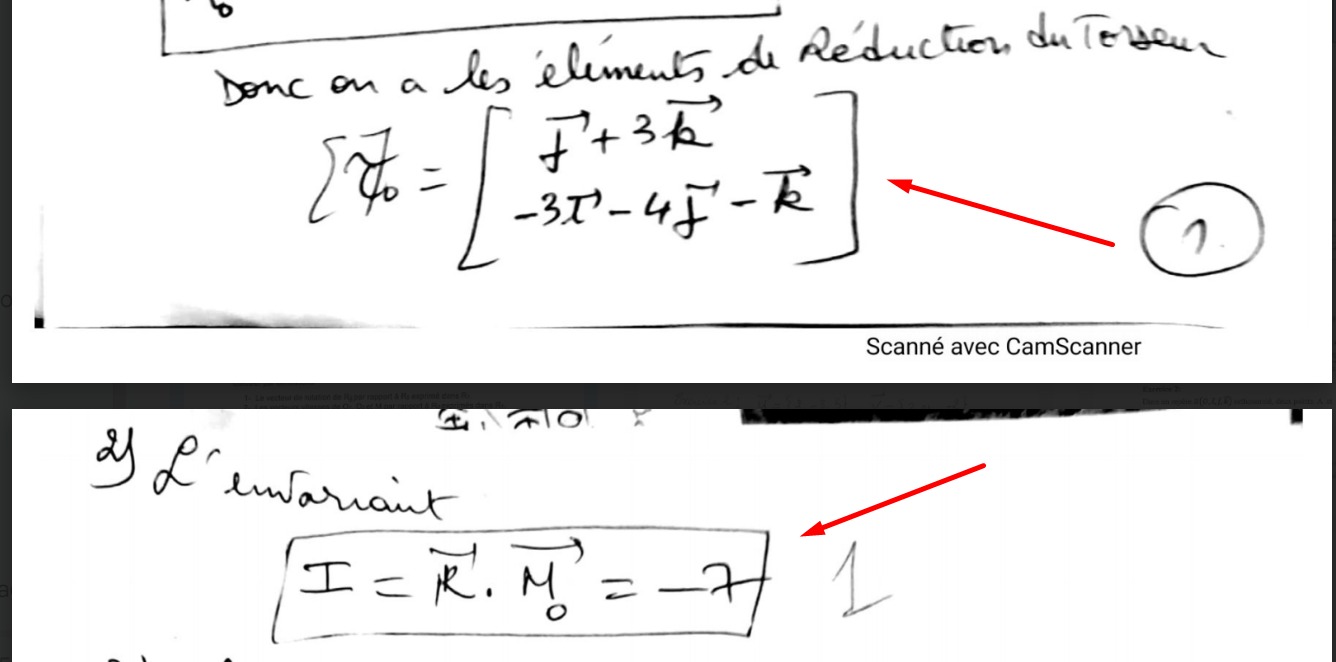 Donc on a les éléments de Réduction du Torseur
[T]₀ = [ j⃗ + 3k⃗
-3i⃗ - 4j⃗ - k⃗ ]
1
Scanné avec CamScanner
2) L'invariant
I = R⃗ . M⃗₀ = -7
1